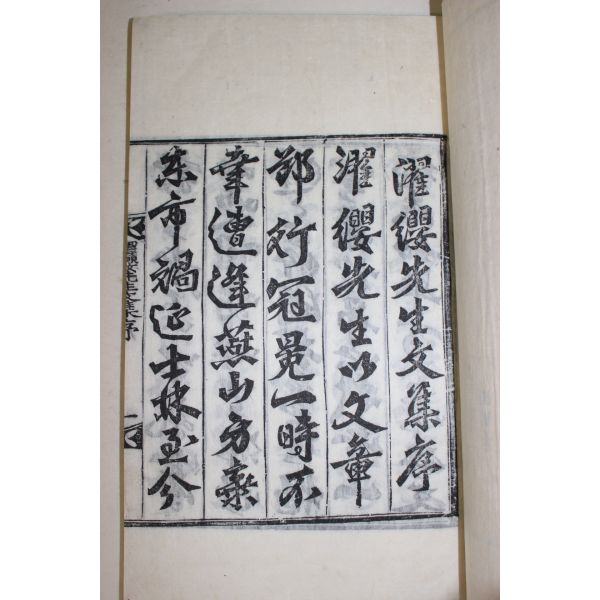 濯纓先生文集序
濯纓先生以文章
節行冠冕一時不
幸遭逢燕山方棄
東市禍延士林至今
濯纓先生文集序